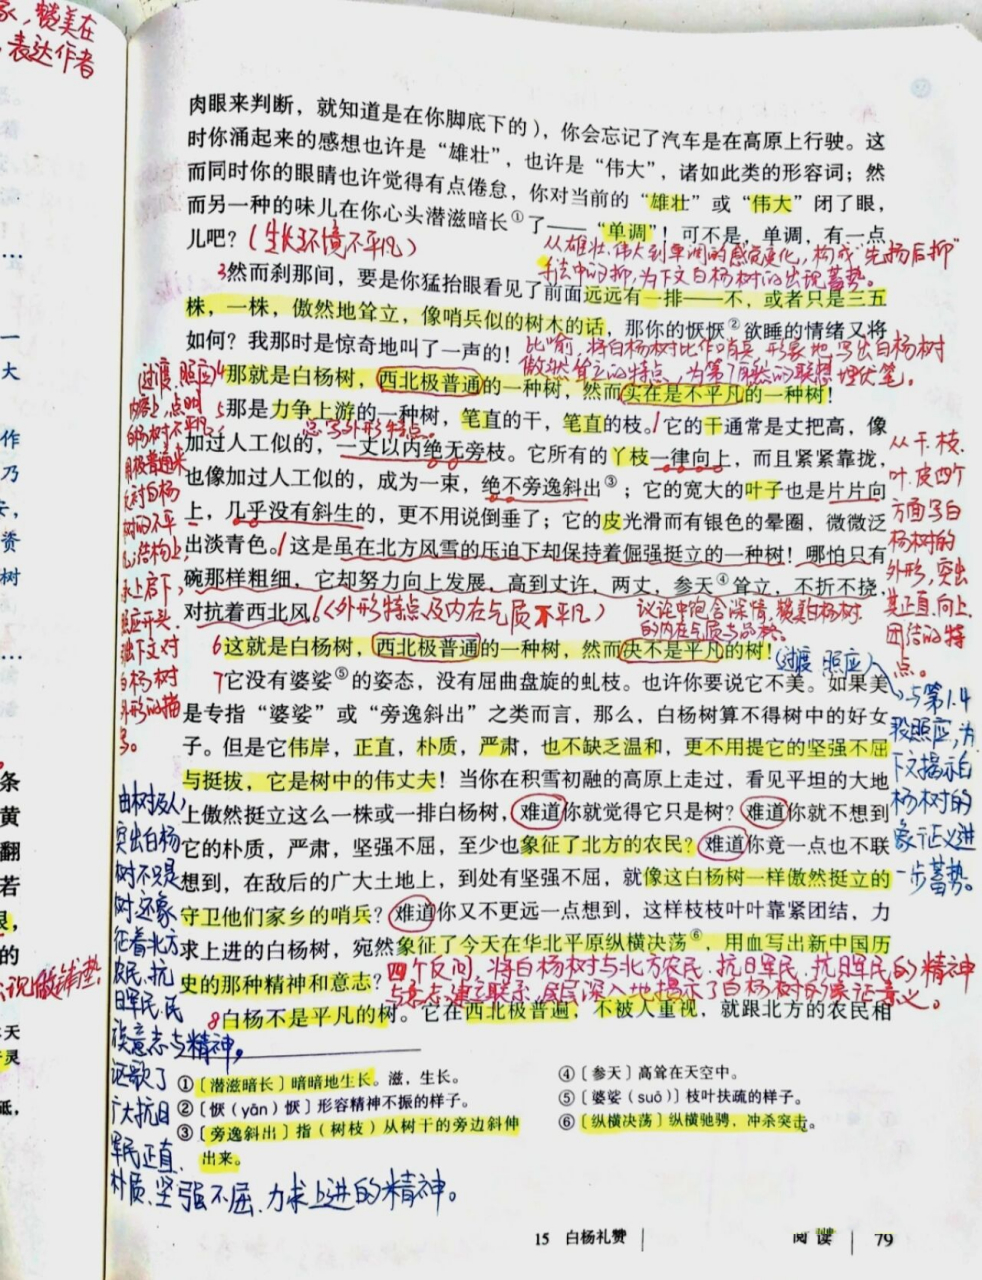 家，赞美在
，表达作者
肉眼来判断，就知道是在你脚底下的），你会忘记了汽车是在高原上行驶。这
时你涌起来的感想也许是“雄壮”，也许是“伟大”，诸如此类的形容词；然
而同时你的眼睛也许觉得有点倦怠，你对当前的“雄壮”或“伟大”闭了眼，
而另一种的味儿在你心头潜滋暗长①了——“单调”！可不是，单调，有一点
儿吧？（生长环境不平凡）
从雄壮、伟大到单调的感觉变化，构成“先扬后抑”
手法中的抑，为下文白杨树的出现蓄势。
3然而刹那间，要是你猛抬眼看见了前面远远有一排——不，或者只是三五
株，一株，傲然地耸立，像哨兵似的树木的话，那你的恹恹②欲睡的情绪又将
如何？我那时是惊奇地叫了一声的！
比喻，将白杨树比作哨兵，形象地写出白杨树
傲然耸立的特点，为第7段的联想埋伏笔。
4那就是白杨树，西北极普通的一种树，然而实在是不平凡的一种树！
5那是力争上游的一种树，笔直的干，笔直的枝。它的干通常是丈把高，像
总写外形特点。
加过人工似的，一丈以内绝无旁枝。它所有的丫枝一律向上，而且紧紧靠拢，
也像加过人工似的，成为一束，绝不旁逸斜出③；它的宽大的叶子也是片片向
上，几乎没有斜生的，更不用说倒垂了；它的皮光滑而有银色的晕圈，微微泛
出淡青色。这是虽在北方风雪的压迫下却保持着倔强挺立的一种树！哪怕只有
碗那样粗细，它却努力向上发展，高到丈许，两丈，参天④耸立，不折不挠，
对抗着西北风。（外形特点及内在气质不平凡）
议论中饱含深情，赞美白杨树
的内在气质与品格。
6这就是白杨树，西北极普通的一种树，然而决不是平凡的树！（过渡 照应）
7它没有婆娑⑤的姿态，没有屈曲盘旋的虬枝。也许你要说它不美。如果美
是专指“婆娑”或“旁逸斜出”之类而言，那么，白杨树算不得树中的好女
子。但是它伟岸，正直，朴质，严肃，也不缺乏温和，更不用提它的坚强不屈
与挺拔，它是树中的伟丈夫！当你在积雪初融的高原上走过，看见平坦的大地
上傲然挺立这么一株或一排白杨树，难道你就觉得它只是树？难道你就不想到
它的朴质，严肃，坚强不屈，至少也象征了北方的农民？难道你竟一点也不联
想到，在敌后的广大土地上，到处有坚强不屈，就像这白杨树一样傲然挺立的
守卫他们家乡的哨兵？难道你又不更远一点想到，这样枝枝叶叶靠紧团结，力
求上进的白杨树，宛然象征了今天在华北平原纵横决荡⑥，用血写出新中国历
史的那种精神和意志？
四个反问，将白杨树与北方农民、抗日军民、抗日军民的精神
与意志建立联系，层层深入地揭示了白杨树的象征意义。
8白杨不是平凡的树。它在西北极普遍，不被人重视，就跟北方的农民相
（过渡、照应）
内容上，点明
白杨树不平凡，
用极普通来
反衬白杨
树的不平
凡；结构上
承上启下，
照应开头，
下文对
白杨树
外形的描
写。
从干、枝、
叶、皮四个
方面写白
杨树的
外形，突出
其正直、向上、
团结的特
点。
与第1.4
段照应，为
下文揭示白
杨树的
象征义进
一步蓄势。
由树及人，
突出白杨
树不只是
树，还象
征着北方
农民、抗
日军民、民
族意志与精神，
讴歌了
广大抗日
军民正直、
朴质、坚强不屈、力求上进的精神。
①〔潜滋暗长〕暗暗地生长。滋，生长。
②〔恹（yān）恹〕形容精神不振的样子。
③〔旁逸斜出〕指（树枝）从树干的旁边斜伸
出来。
④〔参天〕高耸在天空中。
⑤〔婆娑（suō）〕枝叶扶疏的样子。
⑥〔纵横决荡〕纵横驰骋，冲杀突击。
15 白杨礼赞
阅读
79
一
大
作
乃
资
树
条
黄
翻
若
的
做铺垫
天
灵